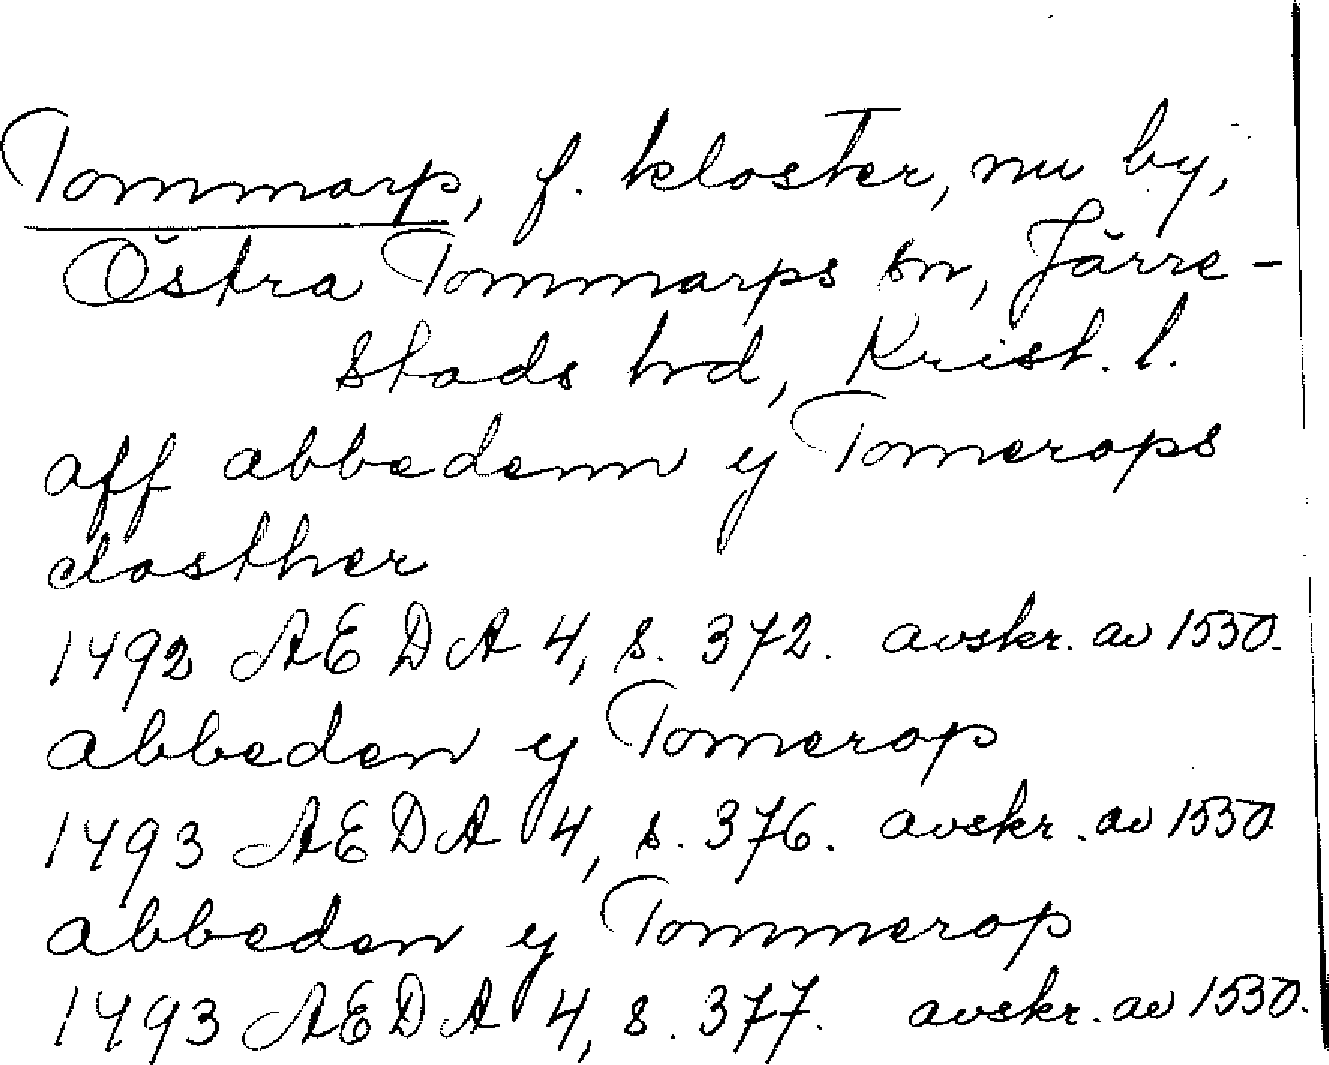 Tommarp, f. kloster, nu by,
Östra Tommarps sn, Järre-
stads hd, Krist. l.
aff abbedenn y Tomerops
closther
1492 AEDA 4, s. 372. avskr. av 1530.
abbeden y Tomerop
1493 AEDA 4, s. 376. avskr. av 1530
abbeden y Tommerop
1493 AEDA 4, s. 377. avskr. av 1530.